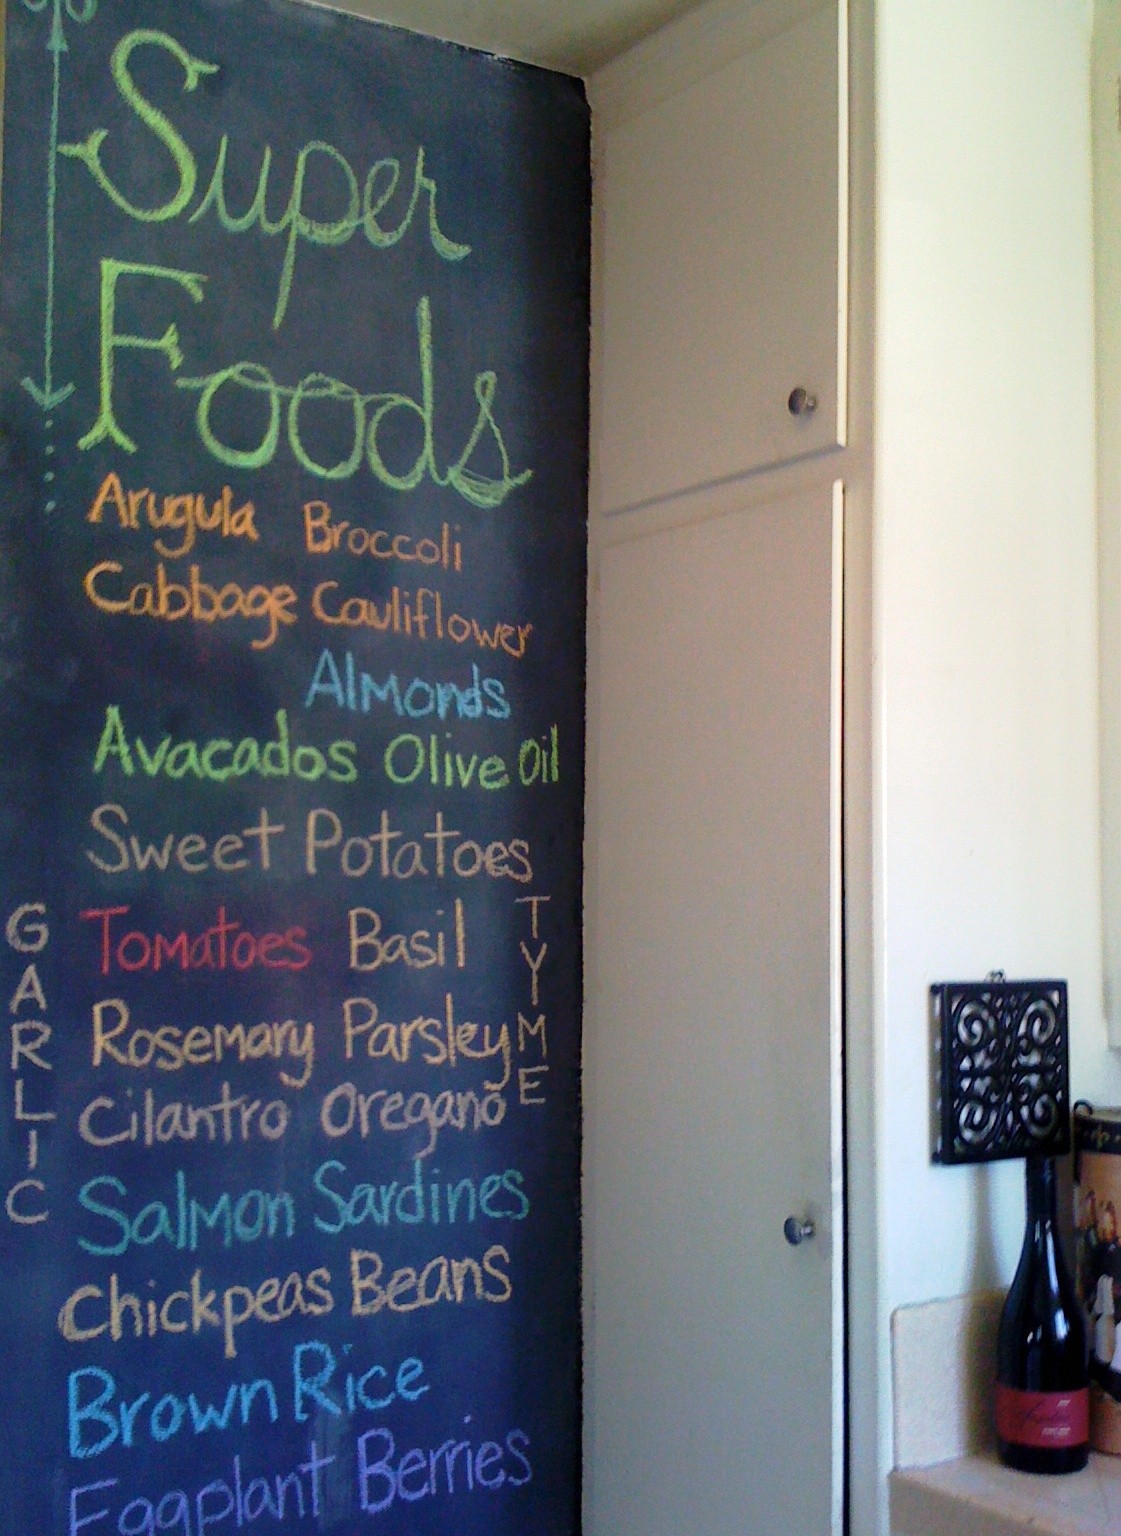 Super
Foods
Arugula Broccoli
Cabbage Cauliflower
Almonds
Avacados Olive Oil
Sweet Potatoes
Tomatoes Basil
Rosemary Parsley
Cilantro Oregano
Salmon Sardines
Chickpeas Beans
Brown Rice
Eggplant Berries
GARLIC
TYME